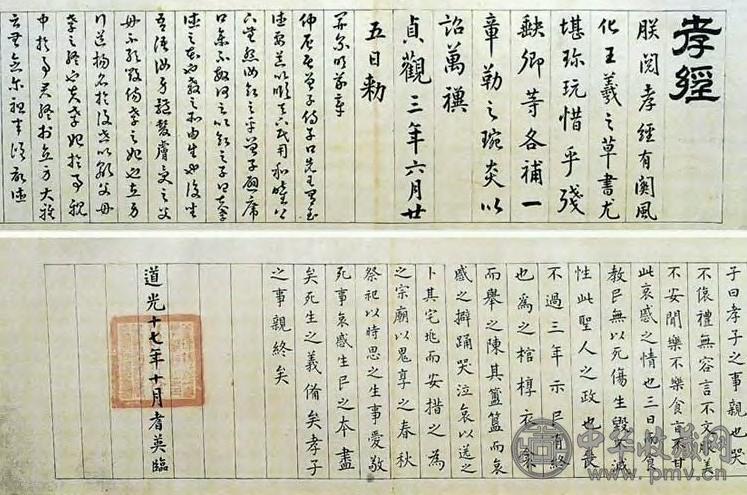 孝經
朕閱孝經有闕風
化王羲之草書尤
堪珎玩惜乎殘
缺卿等各補一
章勒之琬炎以
詔萬禩
貞觀三年六月廿
五日勅
開宗明義章
仲尼居曾子侍子曰先王有至
德要道以順天下民用和睦上
下無怨汝知之乎曾子避席
曰參不敏何足以知之子曰夫孝
德之本也教之所由生也復坐
吾語汝身體髮膚受之父
母不敢毀傷孝之始也立身
行道揚名於後世以顯父母
孝之終也夫孝始於事親
中於事君終於立身大雅
云無念爾祖聿脩厥德
子曰孝子之事親也哭
不偯禮無容言不文服美
不安聞樂不樂食旨不甘
此哀慼之情也三日而食
教民無以死傷生毀不滅
性此聖人之政也喪
不過三年示民有終
也為之棺椁衣衾
而舉之陳其簠簋而哀
慼之擗踊哭泣哀以送之
卜其宅兆而安措之為
之宗廟以鬼享之春秋
祭祀以時思之生事愛敬
死事哀慼生民之本盡
矣死生之義備矣孝子
之事親終矣
道光十七年十月耆英臨
中华收藏网
www.pmv.cn